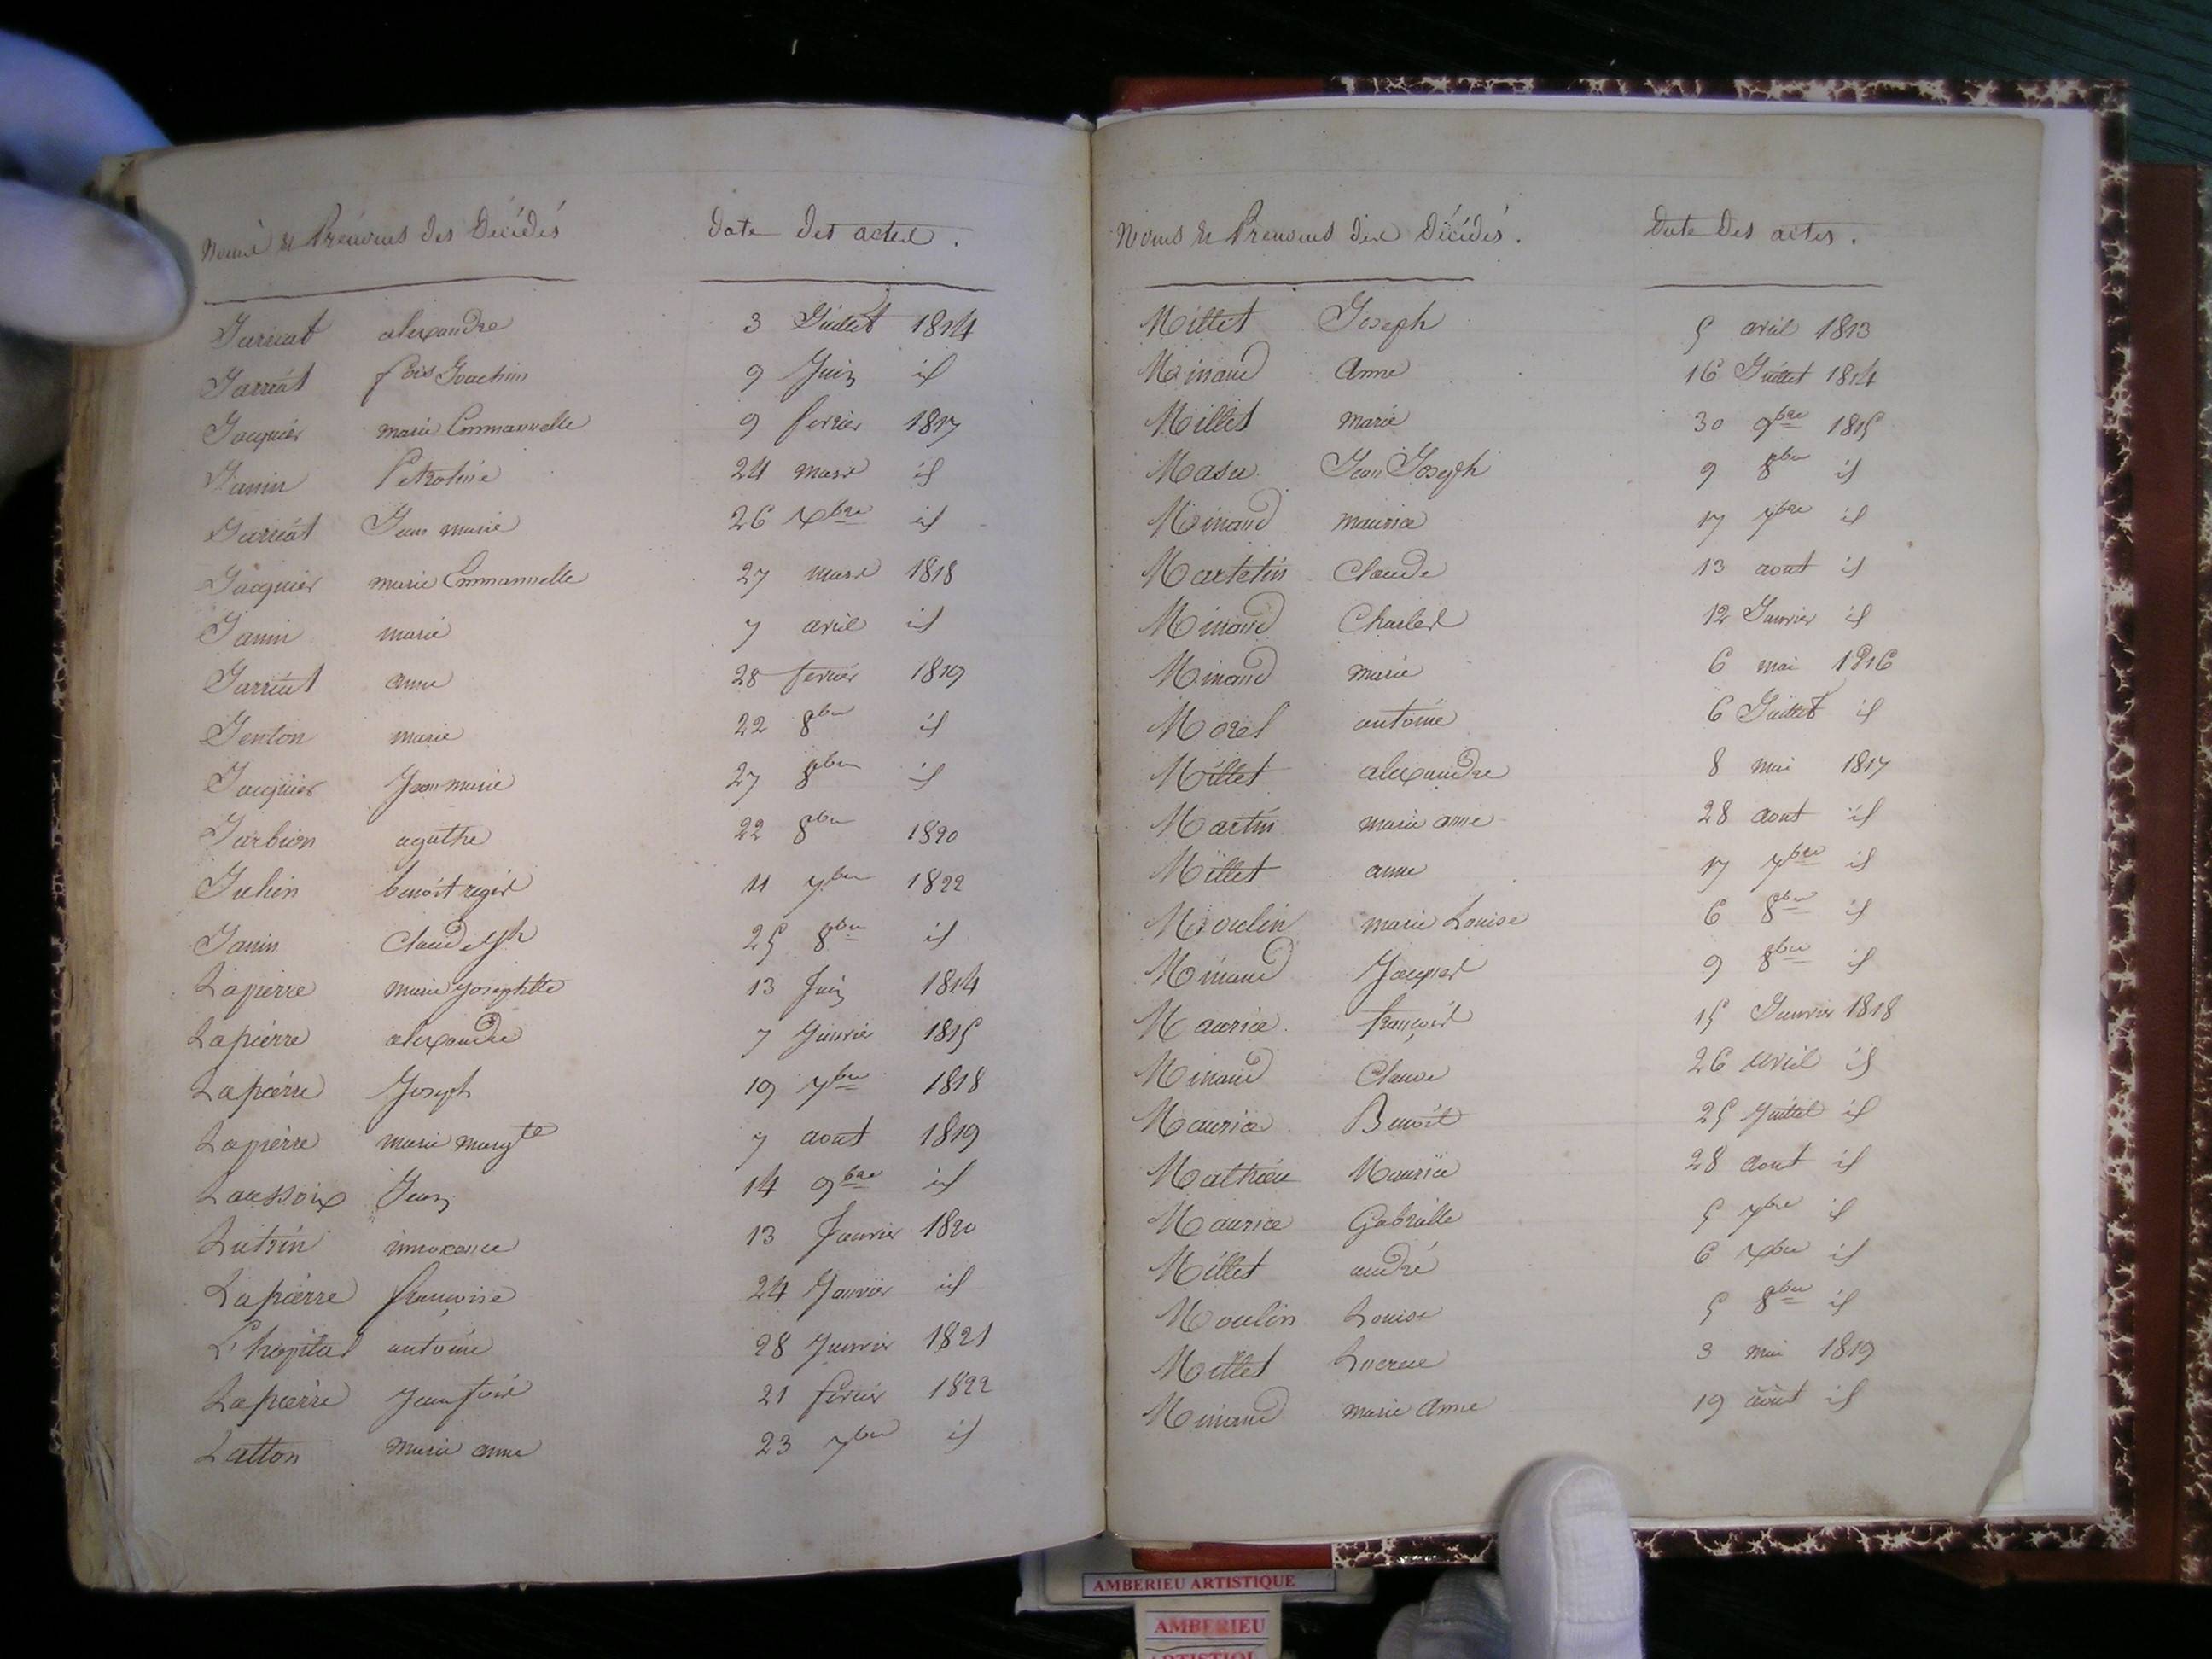 Noms & Prénoms des Décédés Date des actes.
Jarriat alexandre 3 Juillet 1814
Jarriat fois Joachim 9 Juin id
Jacquier marie Emmanuelle 9 fevrier 1817
Janin Petroline 24 mars id
Jarriat Jean marie 26 xbre id
Jacquier marie Emmannelle 27 mars 1818
Janin marie 7 avril id
Jarriat anne 28 fevrier 1819
Jenton marie 22 8bre id
Jacquier Jean marie 27 8bre id
Jarbion agathe 22 8bre 1820
Julien benoit regis 11 7bre 1822
Janin Claude jph 25 8bre id
Lapierre marie josephtte 13 Juin 1814
Lapierre alexandre 7 Janvier 1815
Lapierre Joseph 19 7bre 1818
Lapierre marie margte 7 aout 1819
Laussoix Jean 14 9bre id
Lutrin innocence 13 Janvier 1820
Lapierre françoise 24 Janvier id
L'hopital antoine 28 Janvier 1821
Lapierre Jean 21 fevrier 1822
Latton Marie anne 23 7bre id
Noms & Prenoms des Décédés. Date des actes.
Millet Joseph 5 avril 1813
Minand Anne 16 Juillet 1814
Millet marie 30 9bre 1815
Masu Jean Joseph 9 8bre id
Minand maurice 17 7bre id
Martetin Claude 13 aout id
Minand Charles 12 Janvier id
Minand marie 6 mai 1816
Morel antoine 6 Juillet id
Millet alexandre 8 mai 1817
Martin marie anne 28 aout id
Millet anne 17 7bre id
Moulin marie Louise 6 8bre id
Minand Jacques 9 8bre id
Maurice françois 15 Janvier 1818
Minand Claude 26 avril id
Maurice Benoit 25 Juillet id
Mathieu Maurice 28 aout id
Maurice Gabrielle 5 7bre id
Millet andré 6 xbre id
Moulin Louise 5 8bre id
Millet Lucrece 3 mai 1819
Minand marie Anne 19 août id
AMBERIEU ARTISTIQUE
AMBERIEU
ARTISTIQUE